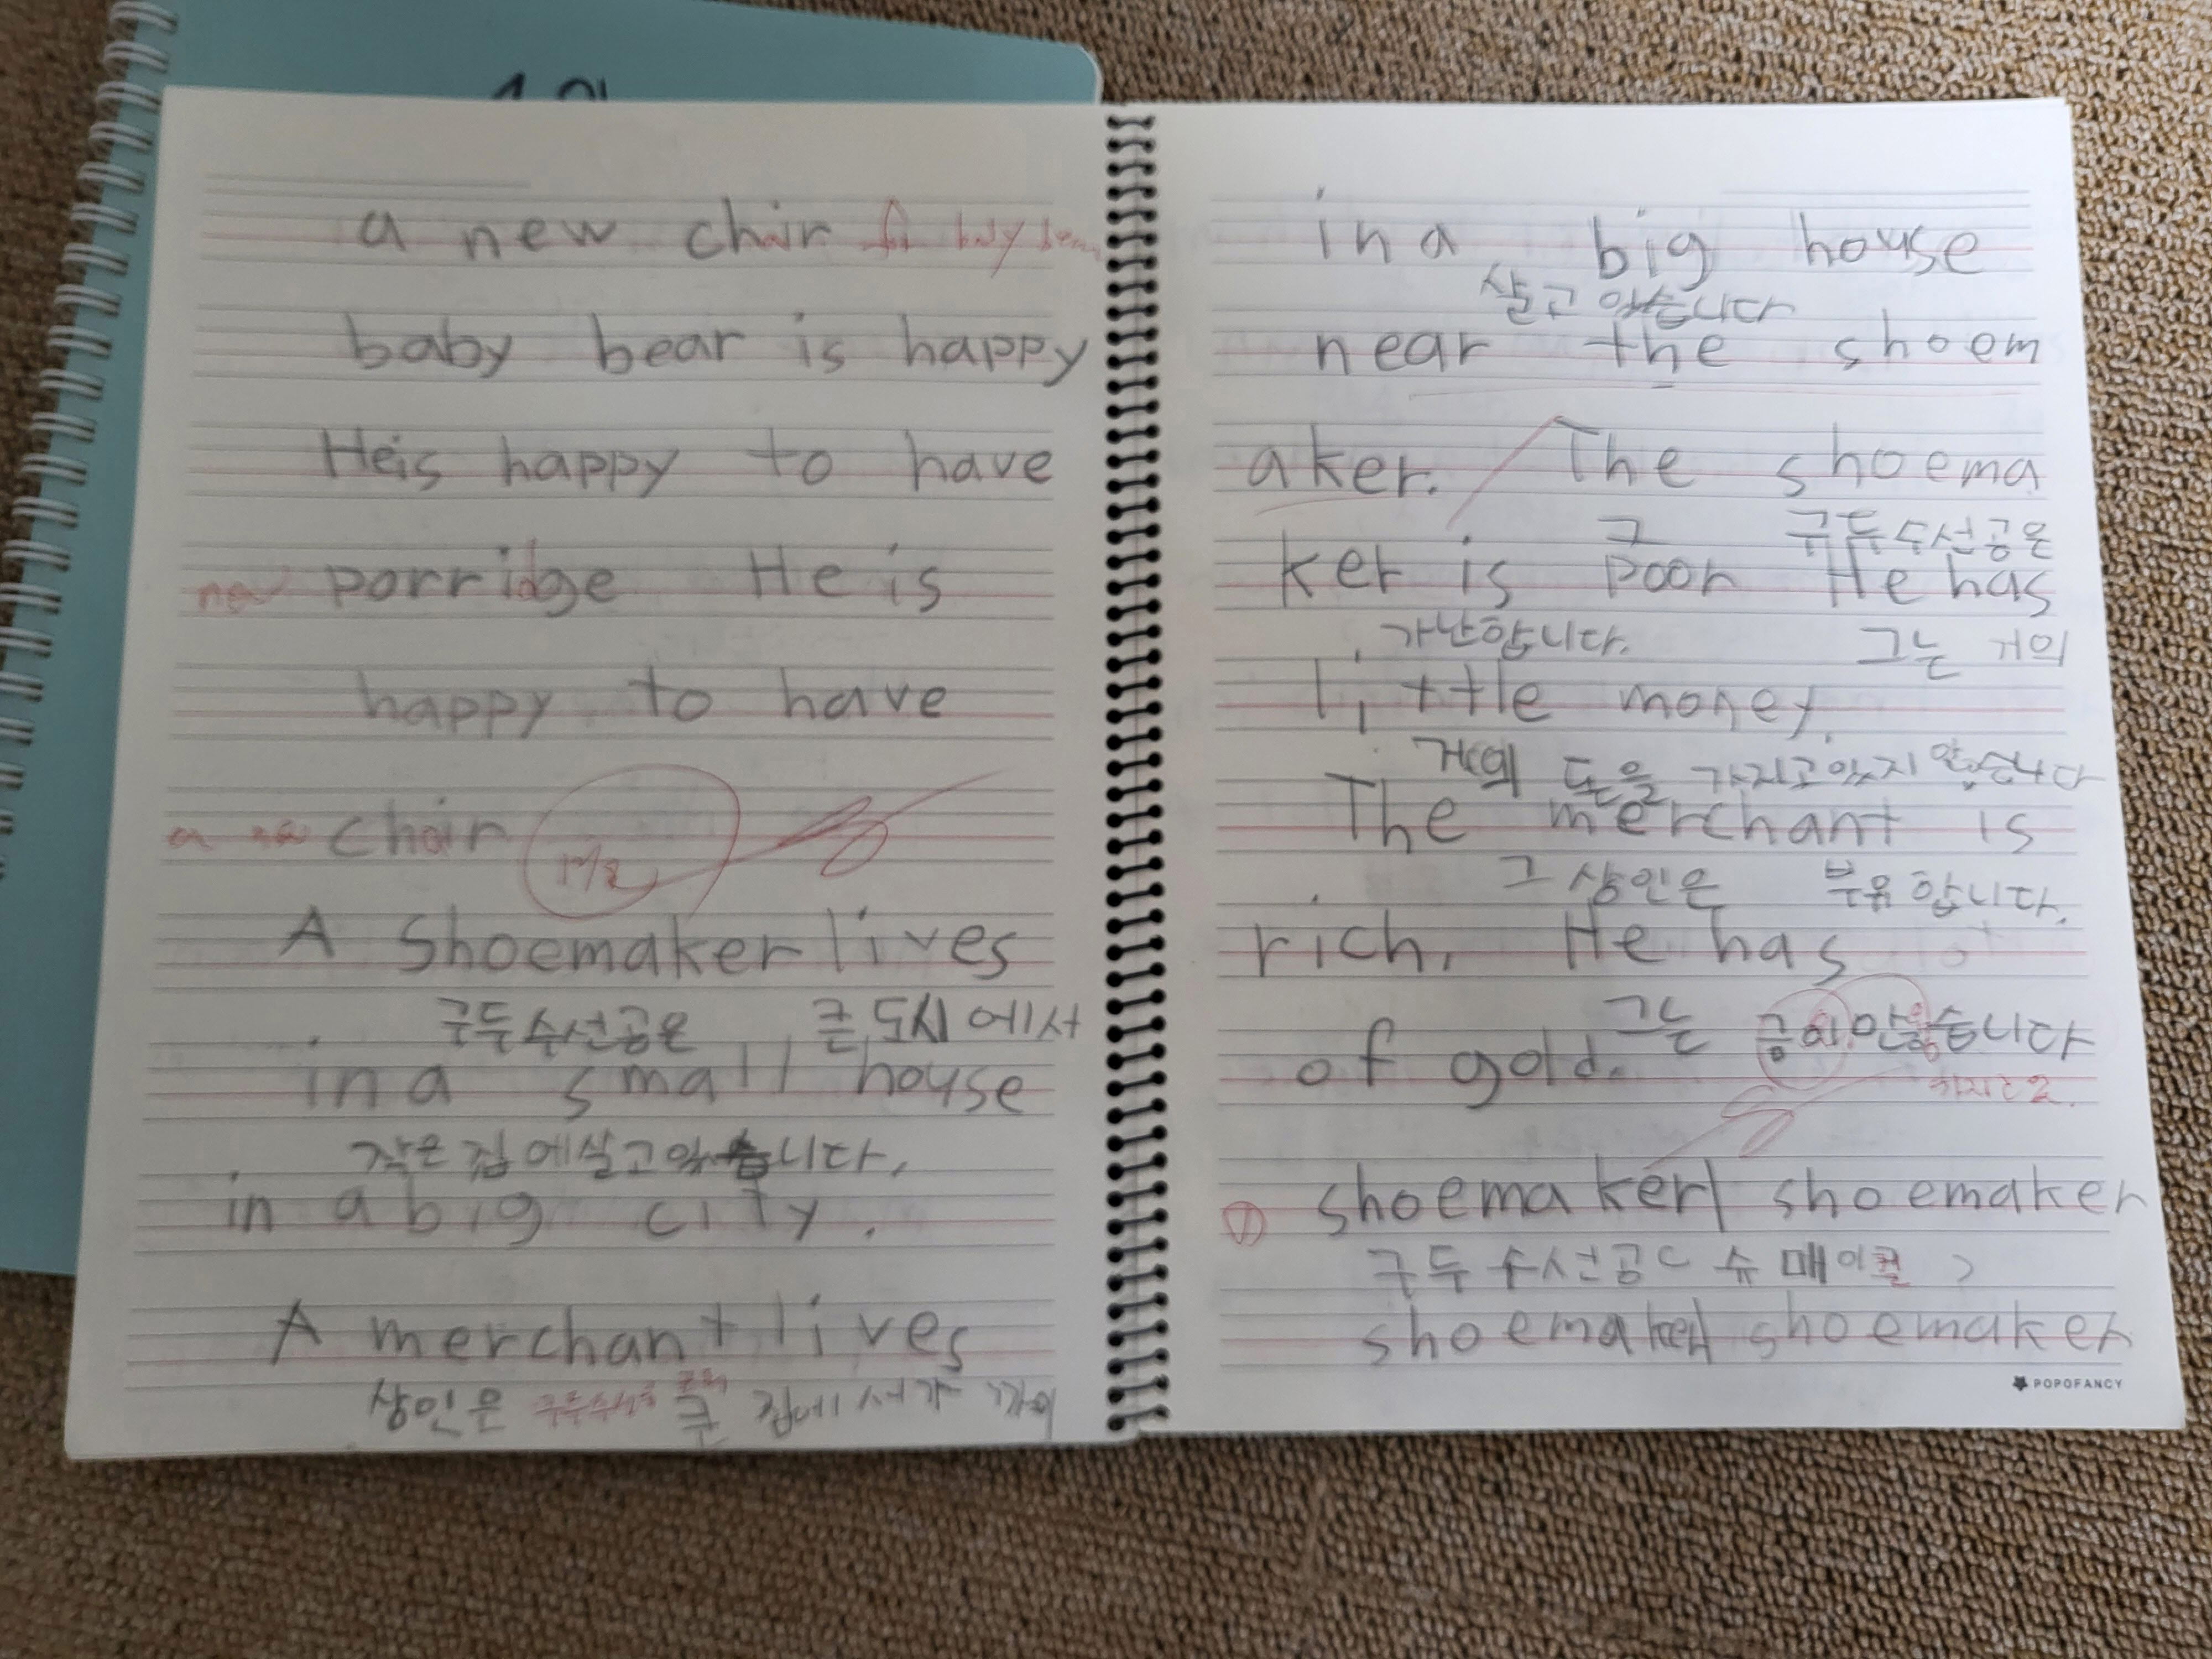 a new chair
baby bear is happy
Heis happy to have
new porridge He is
happy to have
a chair
A Shoemaker lives
구두수선공은 큰 도시에서
in a small house
작은 집에살고있습니다.
in a big city.
A merchant lives
상인은 큰 집에서
in a big house
살고 있습니다
near the shoem
aker. The shoema
그 구두수선공은
ker is poor He has
가난합니다. 그는 거의
little money.
거의 돈을 가지고있지 않습니다
The merchant is
그 상인은 부유합니다.
rich. He has
그는 금이
of gold.
① shoemaker shoemaker
구두수선공 슈메이컬
shoemaker shoemaker
POPOFANCY